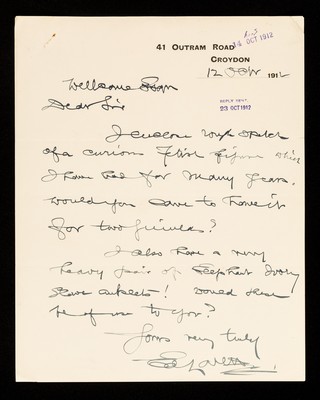 41 OUTRAM ROAD
14 OCT 1912
CROYDON
12 Octr 1912
Wellcome Esqre
REPLY SENT
23 OCT 1912
Dear Sir
I enclose rough sketch
of a curious Fetish figure which
I have had for many years.
would you care to have it
for two guineas?
I also have a very
heavy pair of Elephant Ivory
slave anklets! Would these
be of use to you?
Yours very truly